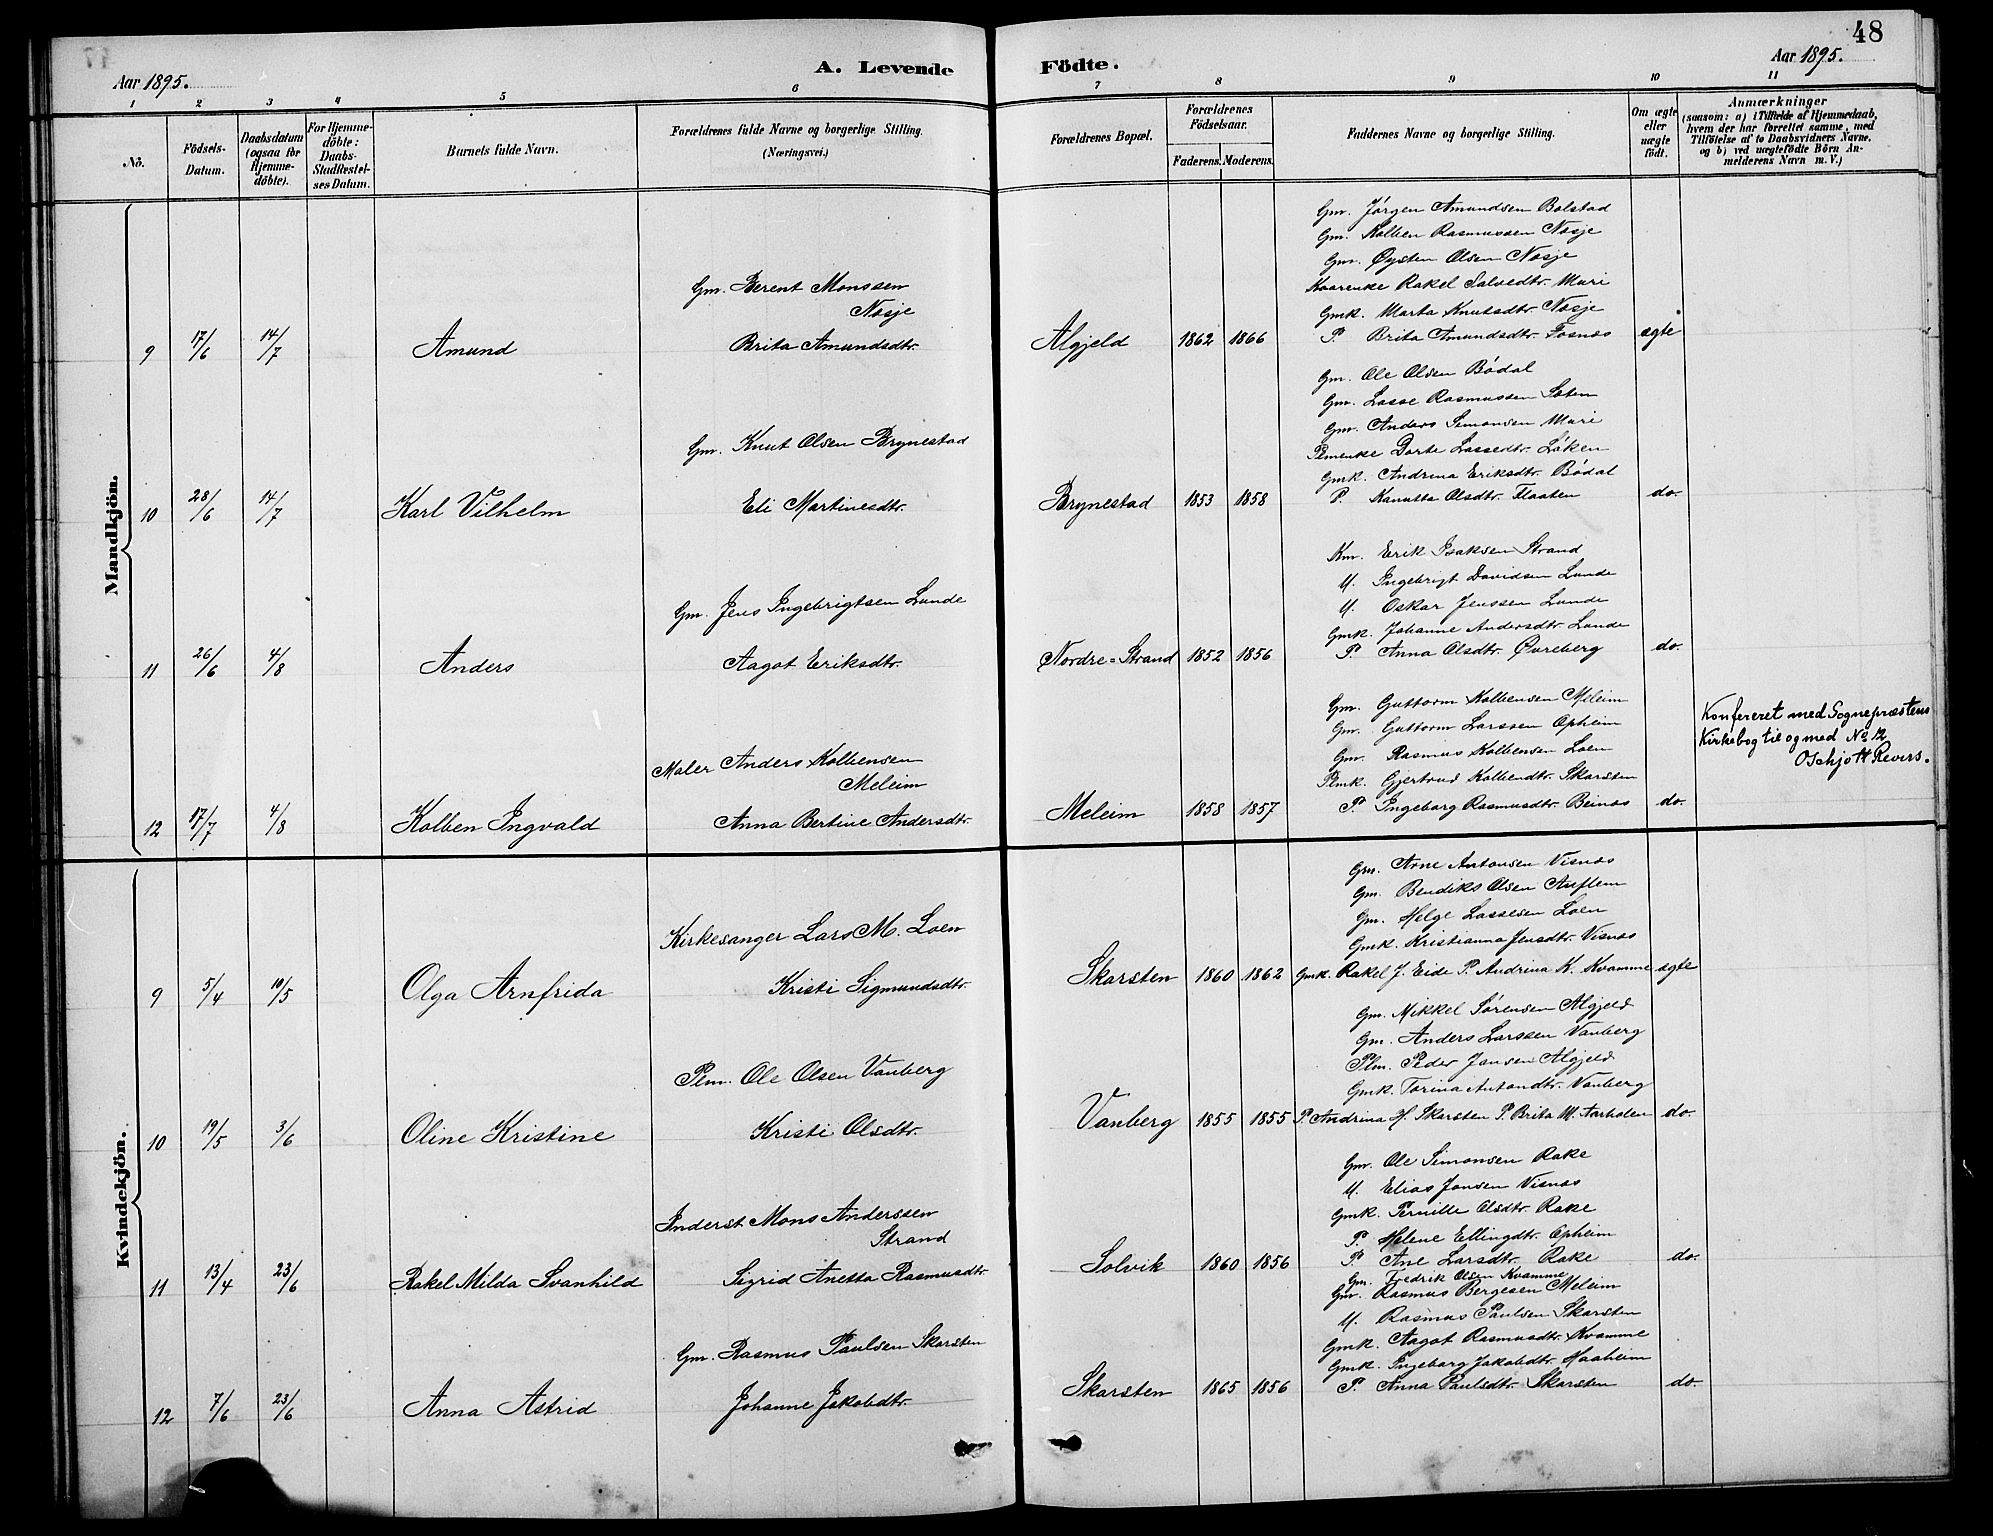 Aar 1895.
A. Levende
Födte.
48
Aar 1895.
1 2 3 4 5 6 7 8 9 10 11
No.
Födsels-Datum.
Daabsdatum (ogsaa for Hjemme-döbte).
For Hjemme-döbte: Daabs-Stadfæstel-ses Datum.
Barnets fulde Navn.
Forældrenes fulde Navne og borgerlige Stilling.
(Næringsvei.)
Forældrenes Bopæl.
Forældrenes Födselsaar.
Faderens. Moderens.
Faddernes Navne og borgerlige Stilling.
Om ægte eller uægte födt.
Anmærkninger
(saasom: a) i Tilfælde af Hjemmedaab, hvem der har forrettet samme, med Tilföielse af to Daabsvidners Navne, og b) ved uægtefödte Börn An-melderens Navn m. V.)
Mandkjön.
Gm. Jørgen Amundsen Bolstad
Gm. Kolben Rasmussen Nosje
Gm. Øysten Olsen Nosje
Kaarenke Rakel Salvedtr. Muri
Gmk. Marta Knutsdtr. Nosje
P. Brita Amundsdtr. Fosnæs
Gm. Berent Monssen
Nosje
Brita Amundsdtr.
9 17/6 14/7 Amund Algjeld 1862 1866 ægte
Gm. Ole Olsen Bødal
Gm. Lasse Rasmussen Sæten
Gm. Anders Simonsen Muri
Pmenke Dorte Lassedtr. Løken
Gmk. Andrina Eriksdtr. Bødal
P. Kanutta Olsdtr. Flaaten
Gm. Knut Olsen Brynestad
Eli Martinesdtr.
10 28/6 14/7 Karl Vilhelm Brynestad 1853 1858 do.
Km. Erik Isaksen Strand
U. Ingebrigt Davidsen Lunde
U. Oskar Jenssen Lunde
Gmk. Johanne Andersdtr. Lunde
P. Anna Olsdtr. Øvreberg
Gm. Jens Ingebrigtsen Lunde
Aagot Eriksdtr.
11 26/6 4/8 Anders Nordre=Strand 1852 1856 do.
Gm. Guttorm Kolbensen Meleim
Gm. Guttorm Larssen Opheim
Gm. Rasmus Kolbensen Loen
Plmk. Gjertrud Kolbendtr. Skarsten
P. Ingeborg Rasmusdtr. Beinæs
Maler Anders Kolbensen
Meleim
Anna Bertine Andersdtr.
12 17/7 4/8 Kolben Ingvald Meleim 1858 1857 do.
Konfereret med Sognepræstens
Kirkebog til og med No 12
O Schjøtt Revers.
Kvindekjön.
Gm. Arne Antonsen Visnæs
Gm. Bendiks Olsen Auflem
Gm. Helge Lassesen Loen
Gmk. Kristianna Jensdtr. Visnæs
Gmk. Rakel J. Eide P. Andrina K. Kvamme
Kirkesanger Lars M. Loen
Kristi Sigmundsdtr.
9 5/4 10/5 Olga Arnfrida Skarsten 1860 1862 ægte
Gm. Mikkel Sørensen Algjeld
Gm. Anders Larssen Vanberg
Plm. Peder Jonsen Algjeld
Gmk. Torina Antondtr. Vanberg
P. Andrina H. Skarsten P. Brita M. Aarholen
Plm. Ole Olsen Vanberg
Kristi Olsdtr.
10 19/5 3/6 Oline Kristine Vanberg 1855 1855 do.
Gm. Ole Simonsen Rake
U. Elias Jonsen Visnæs
Gmk. Pernille Olsdtr. Rake
P. Helene Ellingdtr. Opheim
P. Ane Larsdtr. Rake
Inderst Mons Anderssen
Strand
Sigrid Anetta Rasmusdtr.
11 13/4 23/6 Rakel Milda Svanhild Solvik 1860 1856 do.
Gm. Fredrik Olsen Kvamme
Gm. Rasmus Bergesen Meleim
U. Rasmus Paulsen Skarsten
Gmk. Aagot Rasmusdtr. Kvamme
Gmk. Ingeborg Jakobdtr. Haaheim
P. Anna Paulsdtr. Skarsten
Gm. Rasmus Paulsen Skarsten
Johanne Jakobdtr.
12 7/6 23/6 Anna Astrid Skarsten 1865 1856 do.